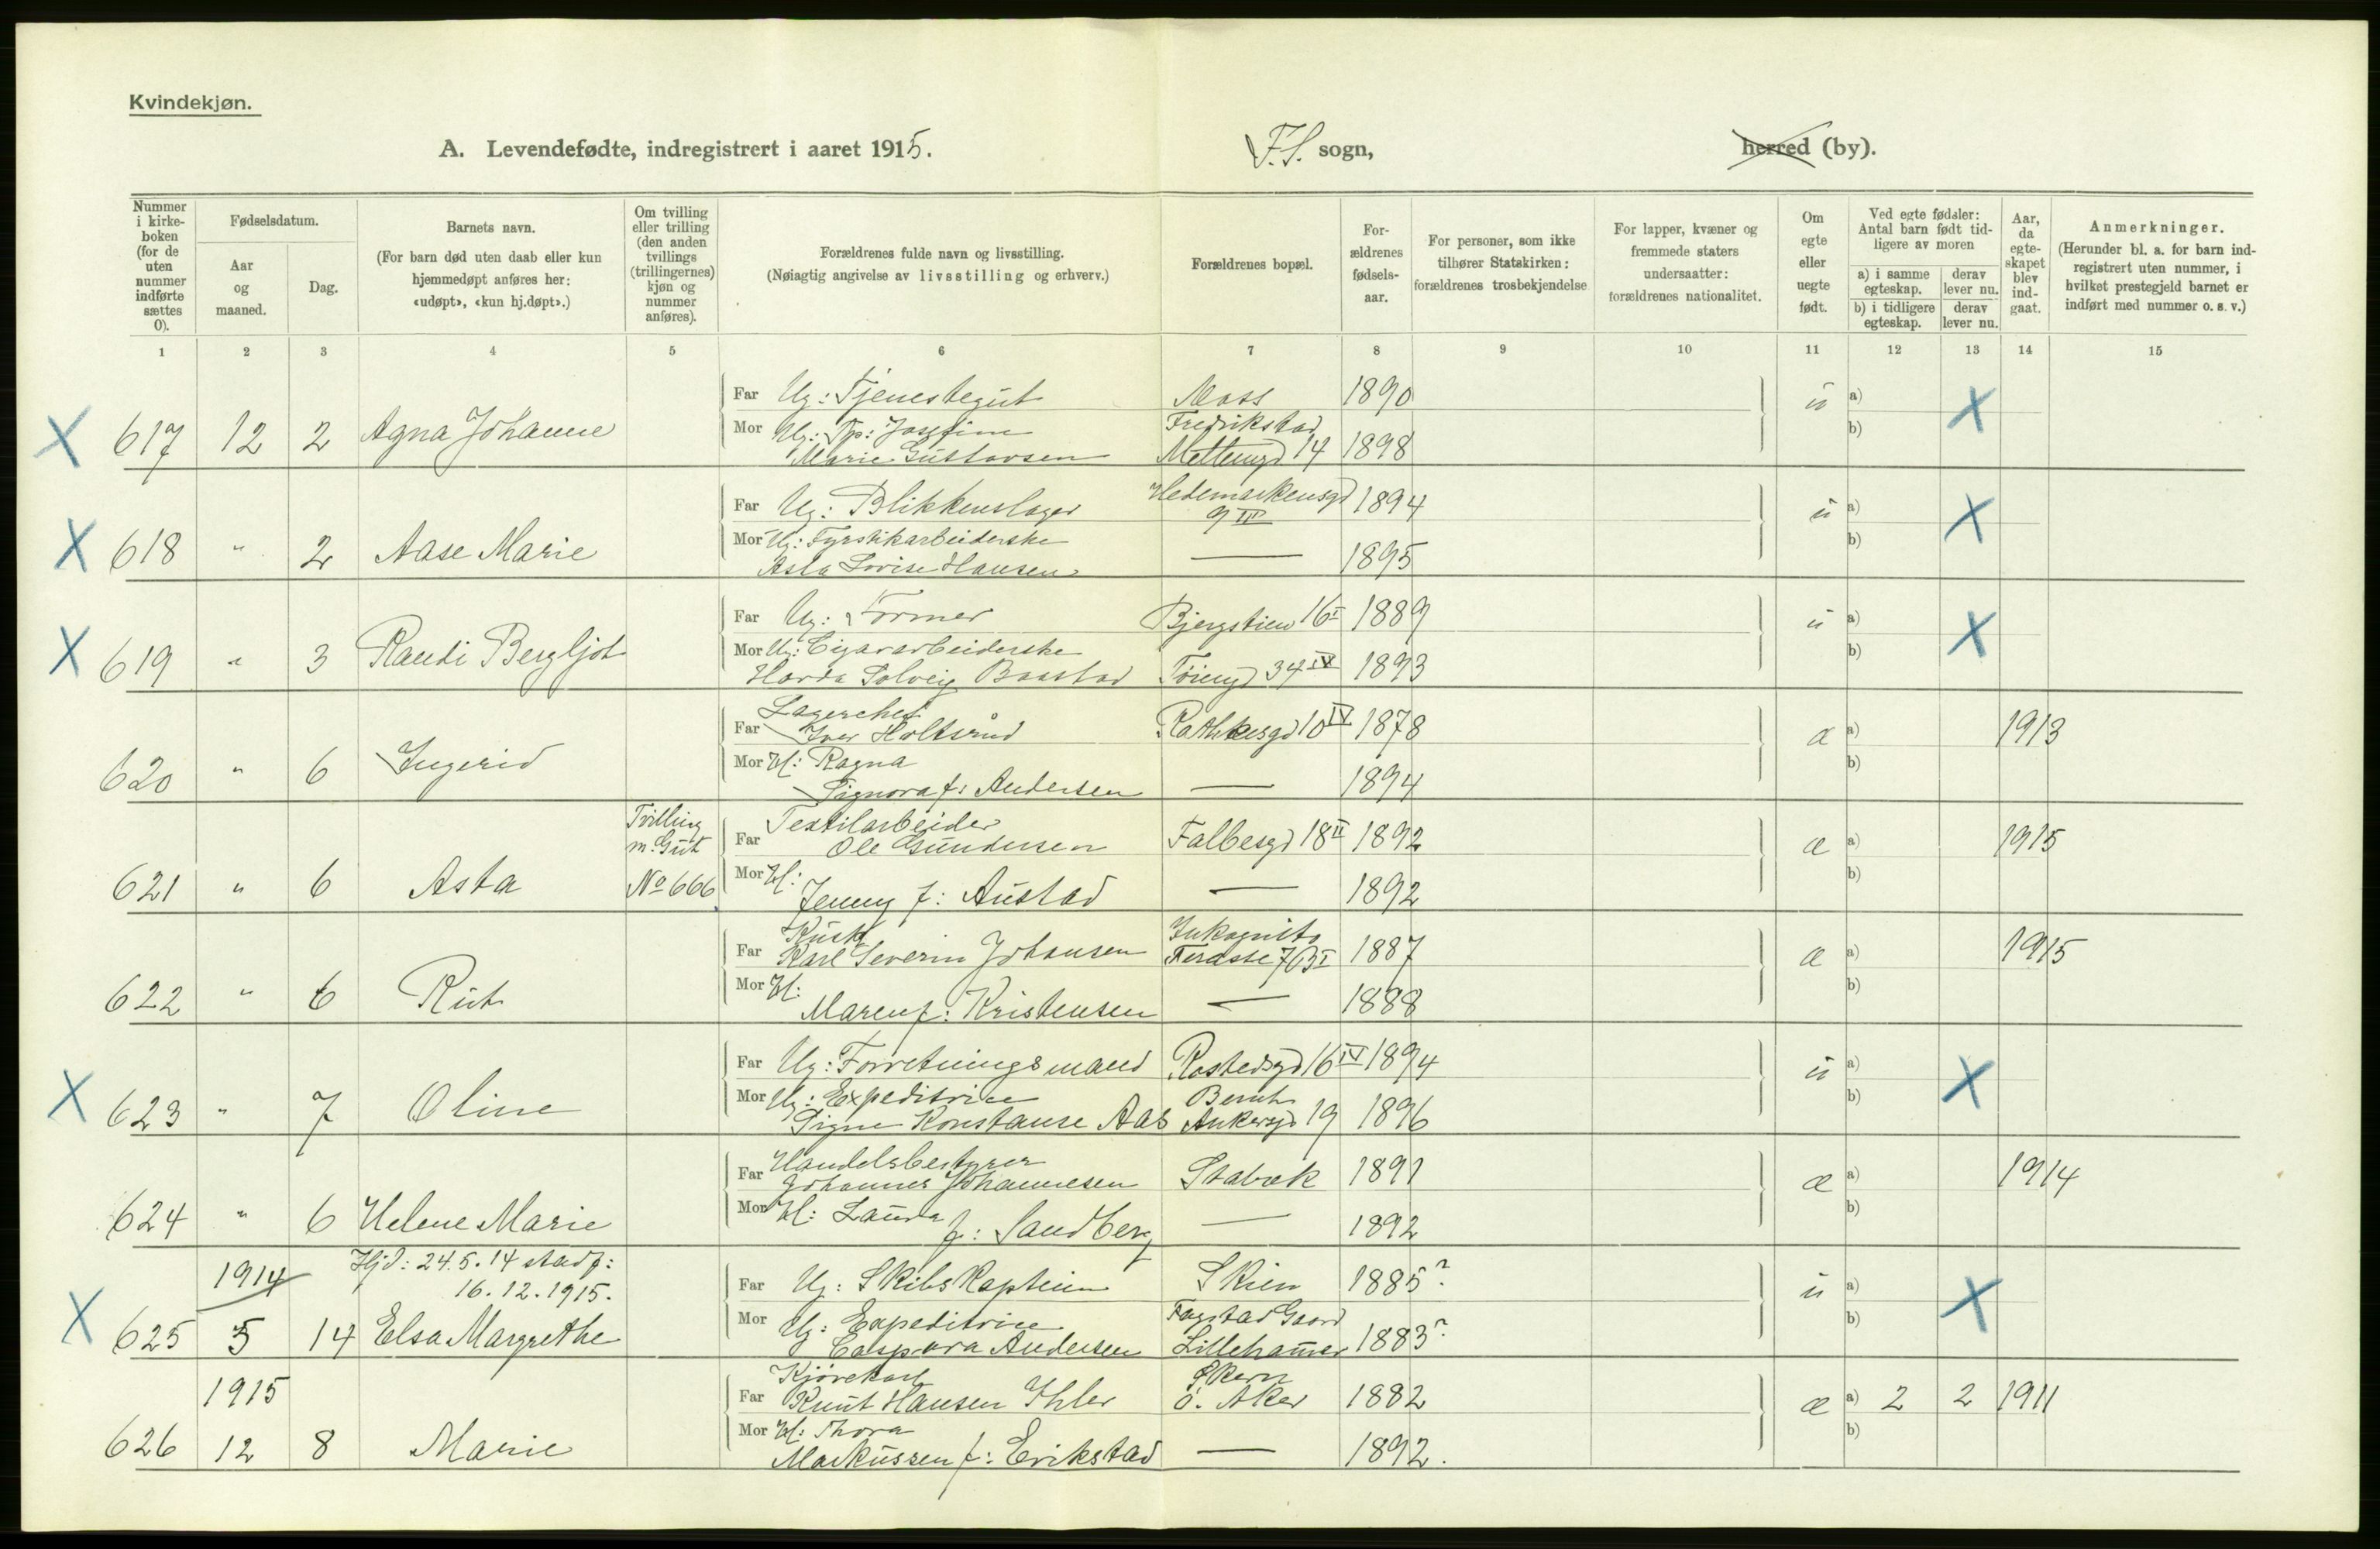 Kvindekjøn.
A. Levendefødte, indregistrert i aaret 1915. F.S. sogn, herred (by).
Nummer i kirke-boken (for de uten nummer indførte sættes 0).
Fødselsdatum.
Aar og maaned.
Dag.
Barnets navn.
(For barn død uten daab eller kun hjemmedøpt anføres her: «udøpt», «kun hj.døpt».)
Om tvilling eller trilling (den anden tvillings (trillingernes) kjøn og nummer anføres).
Forældrenes fulde navn og livsstilling.
(Nøiagtig angivelse av livsstilling og erhverv.)
Forældrenes bopæl.
For-ældrenes fødsels-aar.
For personer, som ikke tilhører Statskirken: forældrenes trosbekjendelse
For lapper, kvæner og fremmede staters undersaatter: forældrenes nationalitet.
Om egte eller uegte født.
Ved egte fødsler: Antal barn født tid-ligere av moren
a) i samme egteskap.
derav lever nu.
b) i tidligere egteskap.
derav lever nu.
Aar, da egte-skapet blev ind-gaat.
Anmerkninger.
(Herunder bl. a. for barn ind-registrert uten nummer, i hvilket prestegjeld barnet er indført med nummer o. s. v.)
1 2 3 4 5 6 7 8 9 10 11 12 13 14 15
Far Ug: Tjenestegut Moss 1890 u a) X
X 617 12 2 Agna Johanne Mor Ug: Tp: Josefine Fredrikstad b)
Marie Gustavsen 14 1898
Far Ug: Blikkenslager Hedemarkensgd 1894 u a) X
9 III
X 618 " 2 Aase Marie Mor Ug: Fyrstikarbeiderske b)
Asta Lovise Hansen — 1895
Far Ug: Former Bjergstien 16 I 1889 u a) X
X 619 " 3 Randi Bergljot Mor Ug: Cigararbeiderske b)
Harda Solveig Baastad Tøiengd 34 IV 1893
Lagerchef
Far Iver Holtsrud Rathkesgd 10 IV 1878 æ a) 1913
620 " 6 Ingerid Mor H: Ragna b)
Signora f: Andersen — 1894
Tvilling Textilarbeider
m. Gut Far Ole Gundersen Falbesgd 18 II 1892 æ a) 1915
621 " 6 Asta No 666 Mor H: b)
Jenny f: Austad — 1892
Kusk Inkognito
Far Karl Severin Johansen Terasse 7 B I 1887 æ a) 1915
622 " 6 Rut Mor H: b)
Maren f: Kristensen — 1888
Far Ug: Forretningsmand Rostedsgd 16 IV 1894 u a) X
X 623 " 7 Oline Mor Ug: Expeditrice Bernh b)
Signe Konstanse Aas Ankersgd 19 1896
Handelsbestyrer
Far Johannes Johannesen Stabæk 1891 æ a) 1914
624 " 6 Helene Marie Mor H: Laura b)
f: Sandberg — 1892
1914 Hjd: 24.5.14 stadf:
16.12.1915. Far Ug: Skibskaptein Skien 1885? u a) X
X 625 5 14 Elsa Margrethe Mor Ug: Expeditrice Fagstad Gaard b)
Caspara Andersen Lillehamer 1883?
Kjørekarl
1915 Far Knut Hansen Ihler Ø. Aker 1882 æ a) 2 2 1911
626 12 8 Marie Mor H: Thora b)
Markussen f: Erikstad — 1892.